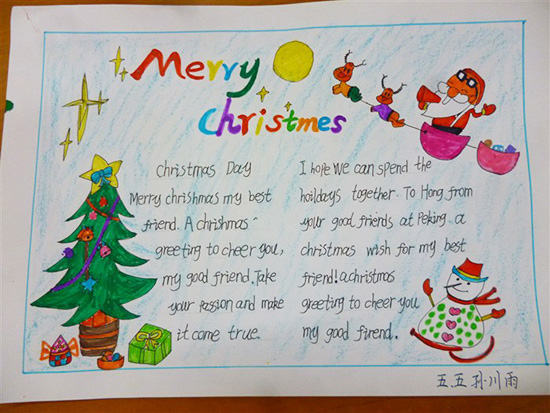 Merry
christmes
Christmas Day
Merry chrishmas my best
friend. A chrishmas
greeting to cheer you,
my good friend. Take
your passion and make
it come true.
I hope we can spend the
hoildays together. To Hong from
your good friends, at Peking. a
christmas wish for my best
friend! a christmas
greeting to cheer you
my good firend.
五.五 孙川雨